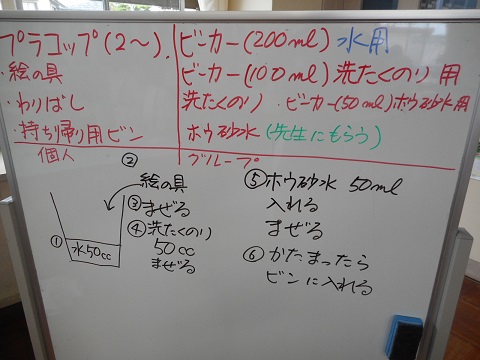 プラコップ(2〜).
・絵の具
・わりばし
・持ち帰り用ビン
個人
ビーカー(200ml) 水用
ビーカー(100ml) 洗たくのり 用
洗たくのり ・ビーカー(50ml)ホウ砂水用
ホウ砂水 (先生にもらう)
グループ
① 水50cc
② 絵の具
③ まぜる
④ 洗たくのり
50cc
まぜる
⑤ ホウ砂水 50ml
入れる
まぜる
⑥ かたまったら
ビンに入れる